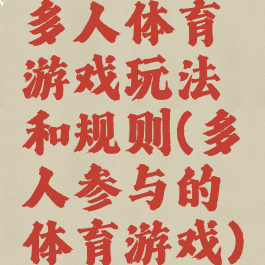 多人体育
游戏玩法
和规则(多
人参与的
体育游戏)